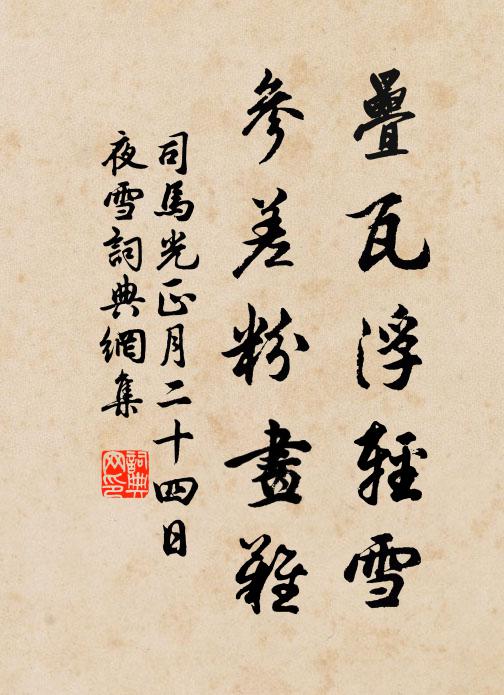 疊瓦浮輕雪
參差粉畫難
司馬光正月二十四日
夜雪詞典網集
詞典网印